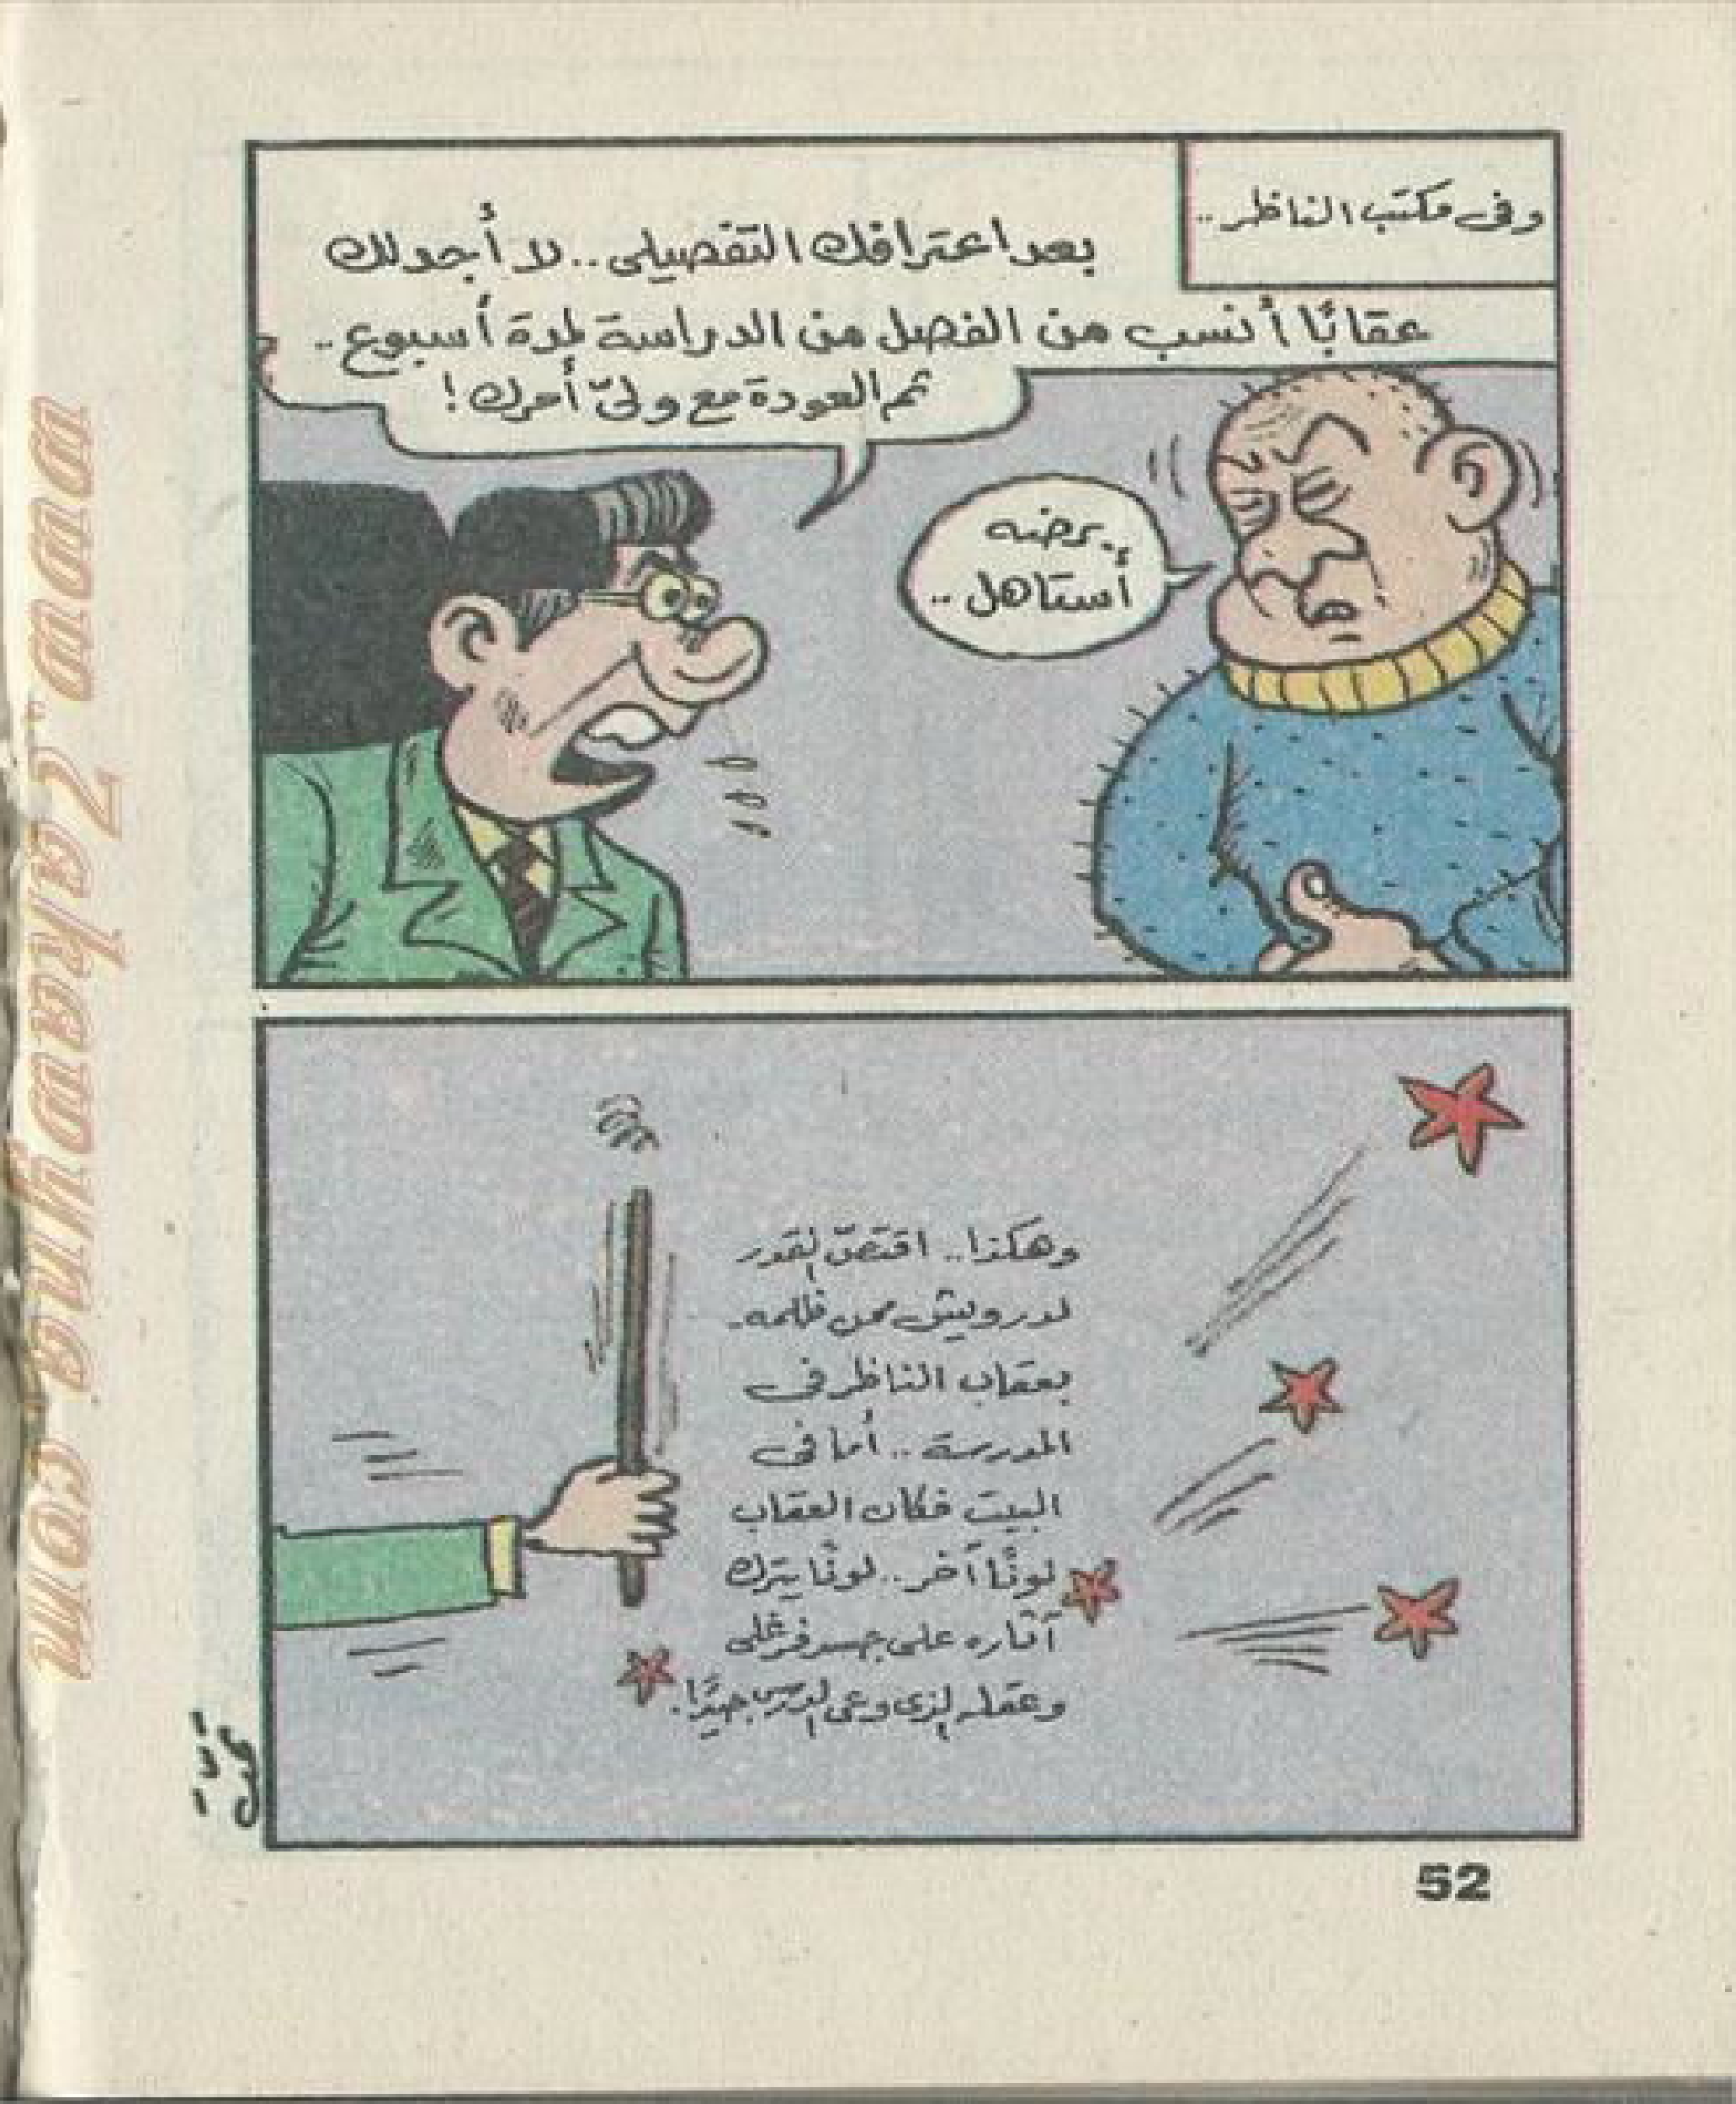 وفى مكتب الناظر..
بعد اعترافك التفصيلى.. لا أجد لك
عقابًا أنسب من الفصل من الدراسة لمدة أسبوع..
ثم العودة مع ولىّ أمرك!
برضه
أستاهل..
وهكذا.. اقتصّ القدر
لدرويش ممن ظلمه
بعقاب الناظر فى
المدرسة.. أما فى
البيت فكان العقاب
لونًا آخر.. لونًا يترك
آثاره على جسد فرغلى
وعقله الذى وعى الدرس جيدًا!
52